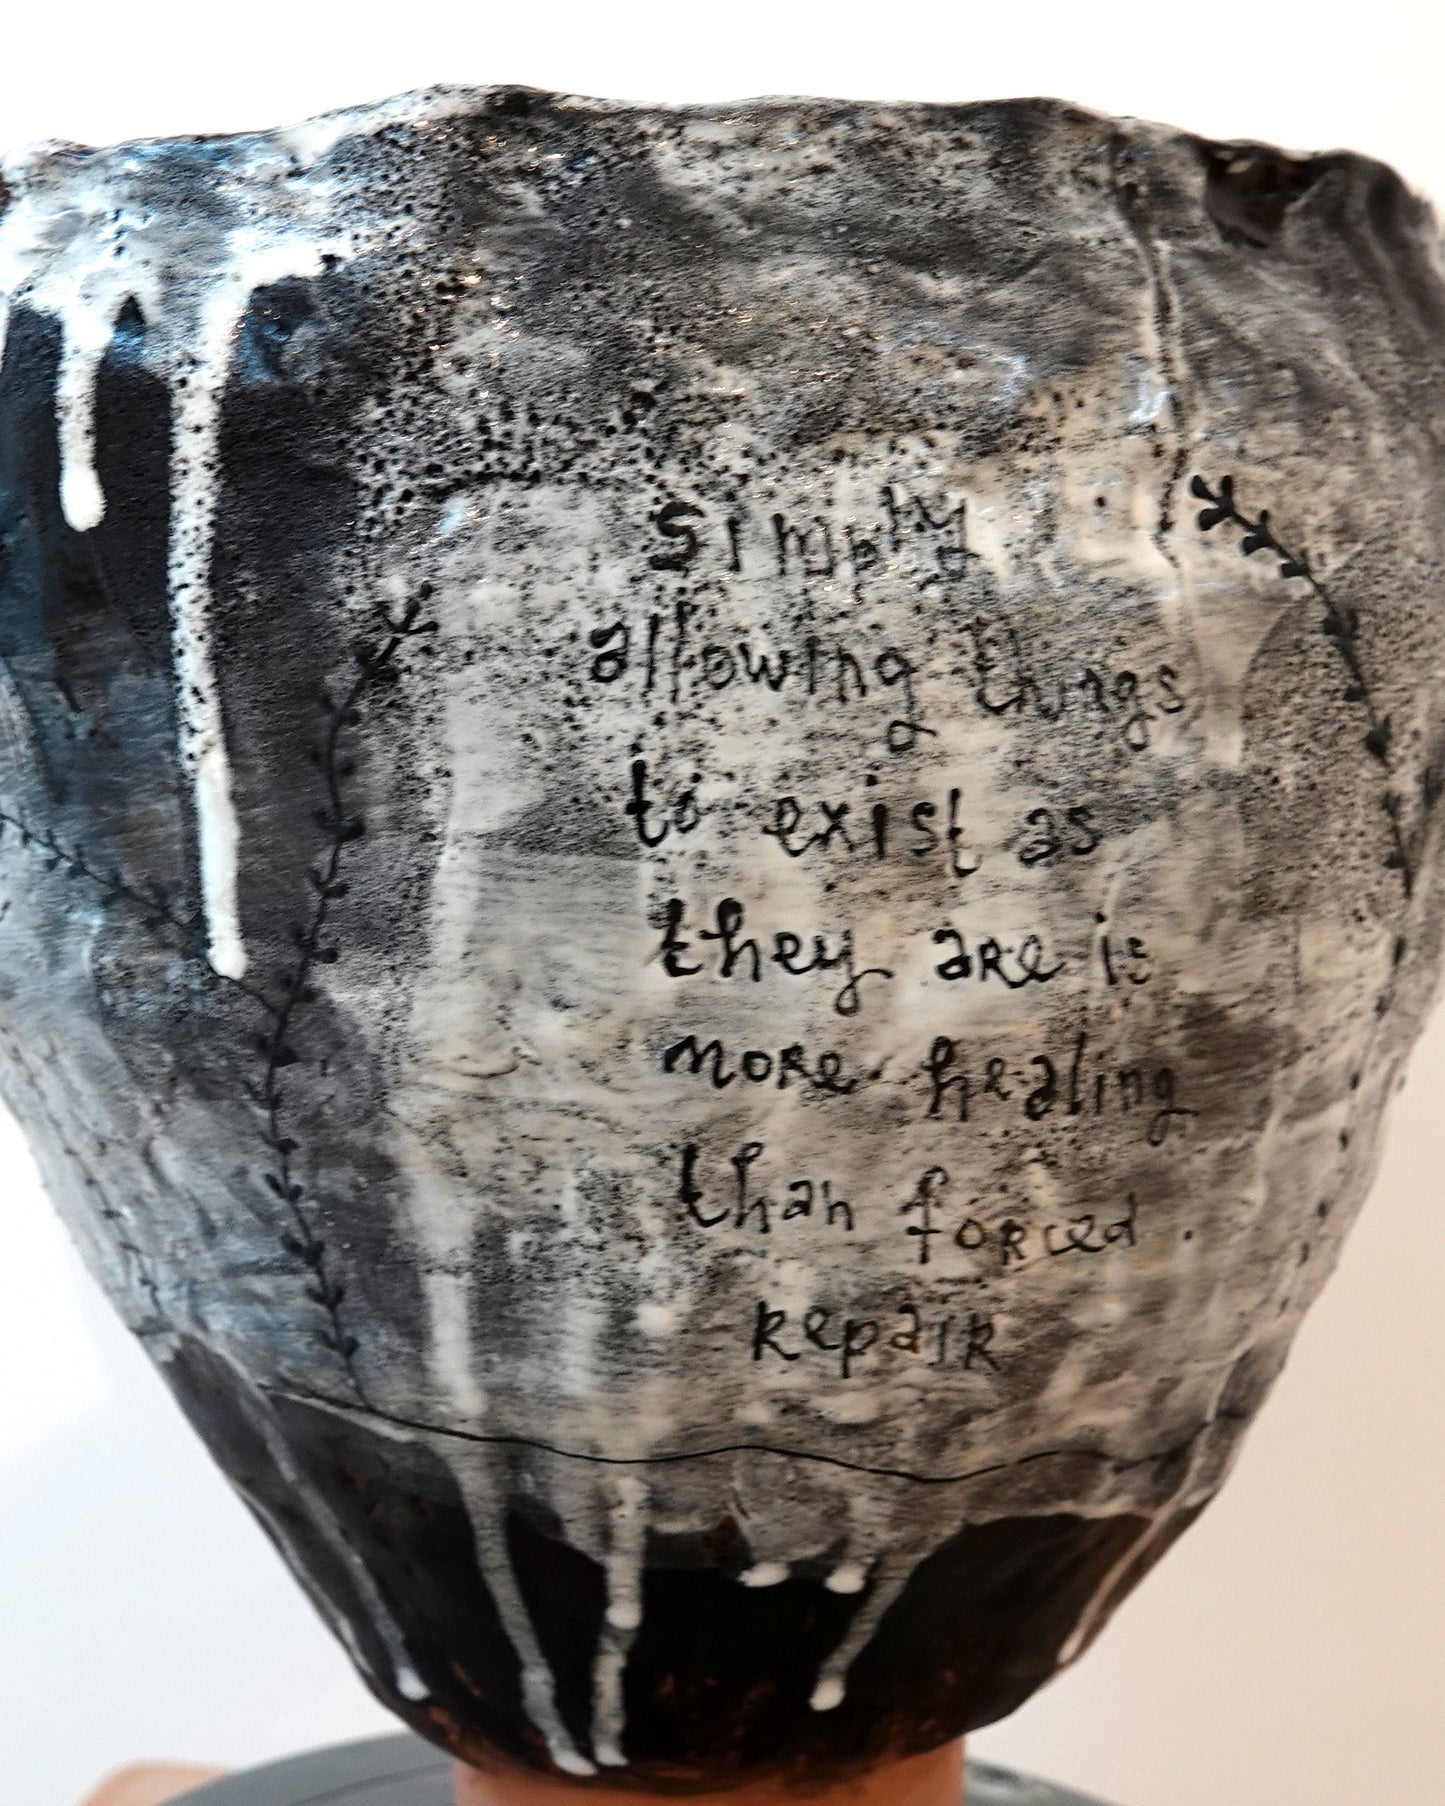 simply
allowing things
to exist as
they are is
more healing
than forced.
repair